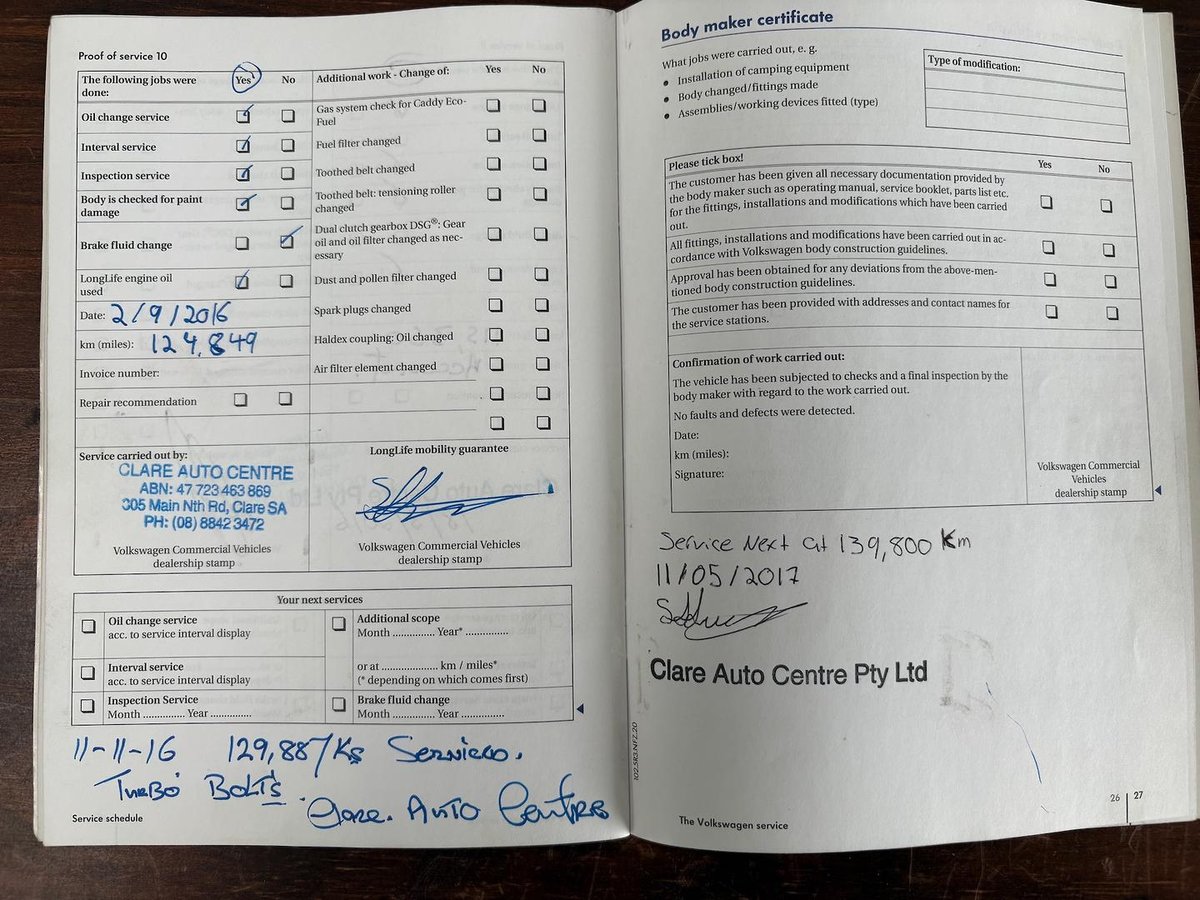 Proof of service 10
The following jobs were done:
Yes
No
Oil change service
Interval service
Inspection service
Body is checked for paint damage
Brake fluid change
LongLife engine oil used
Date: 2/9/2016
km (miles): 124,849
Invoice number:
Repair recommendation
Additional work - Change of:
Yes
No
Gas system check for Caddy Eco-
Fuel
Fuel filter changed
Toothed belt changed
Toothed belt: tensioning roller
changed
Dual clutch gearbox DSG®: Gear
oil and oil filter changed as nec-
essary
Dust and pollen filter changed
Spark plugs changed
Haldex coupling: Oil changed
Air filter element changed
Service carried out by:
CLARE AUTO CENTRE
ABN: 47 723 463 869
305 Main Nth Rd, Clare SA
PH: (08) 8842 3472
Volkswagen Commercial Vehicles
dealership stamp
LongLife mobility guarantee
Volkswagen Commercial Vehicles
dealership stamp
Your next services
Oil change service
acc. to service interval display
Interval service
acc. to service interval display
Inspection Service
Month .............. Year .............
Additional scope
Month .............. Year* ..............
or at .................... km / miles*
(* depending on which comes first)
Brake fluid change
Month .............. Year ..............
11-11-16 129,887 Ks Serviceo.
Turbo Bolts.
Clare. Auto Centre
Service schedule
Body maker certificate
What jobs were carried out, e. g.
• Installation of camping equipment
• Body changed/fittings made
• Assemblies/working devices fitted (type)
Type of modification:
Please tick box!
Yes
No
The customer has been given all necessary documentation provided by
the body maker such as operating manual, service booklet, parts list etc.
for the fittings, installations and modifications which have been carried
out.
All fittings, installations and modifications have been carried out in ac-
cordance with Volkswagen body construction guidelines.
Approval has been obtained for any deviations from the above-men-
tioned body construction guidelines.
The customer has been provided with addresses and contact names for
the service stations.
Confirmation of work carried out:
The vehicle has been subjected to checks and a final inspection by the
body maker with regard to the work carried out.
No faults and defects were detected.
Date:
km (miles):
Signature:
Volkswagen Commercial
Vehicles
dealership stamp
Service Next at 139,800 Km
11/05/2017
Clare Auto Centre Pty Ltd
102.5R3.NFZ.20
The Volkswagen service
26 | 27